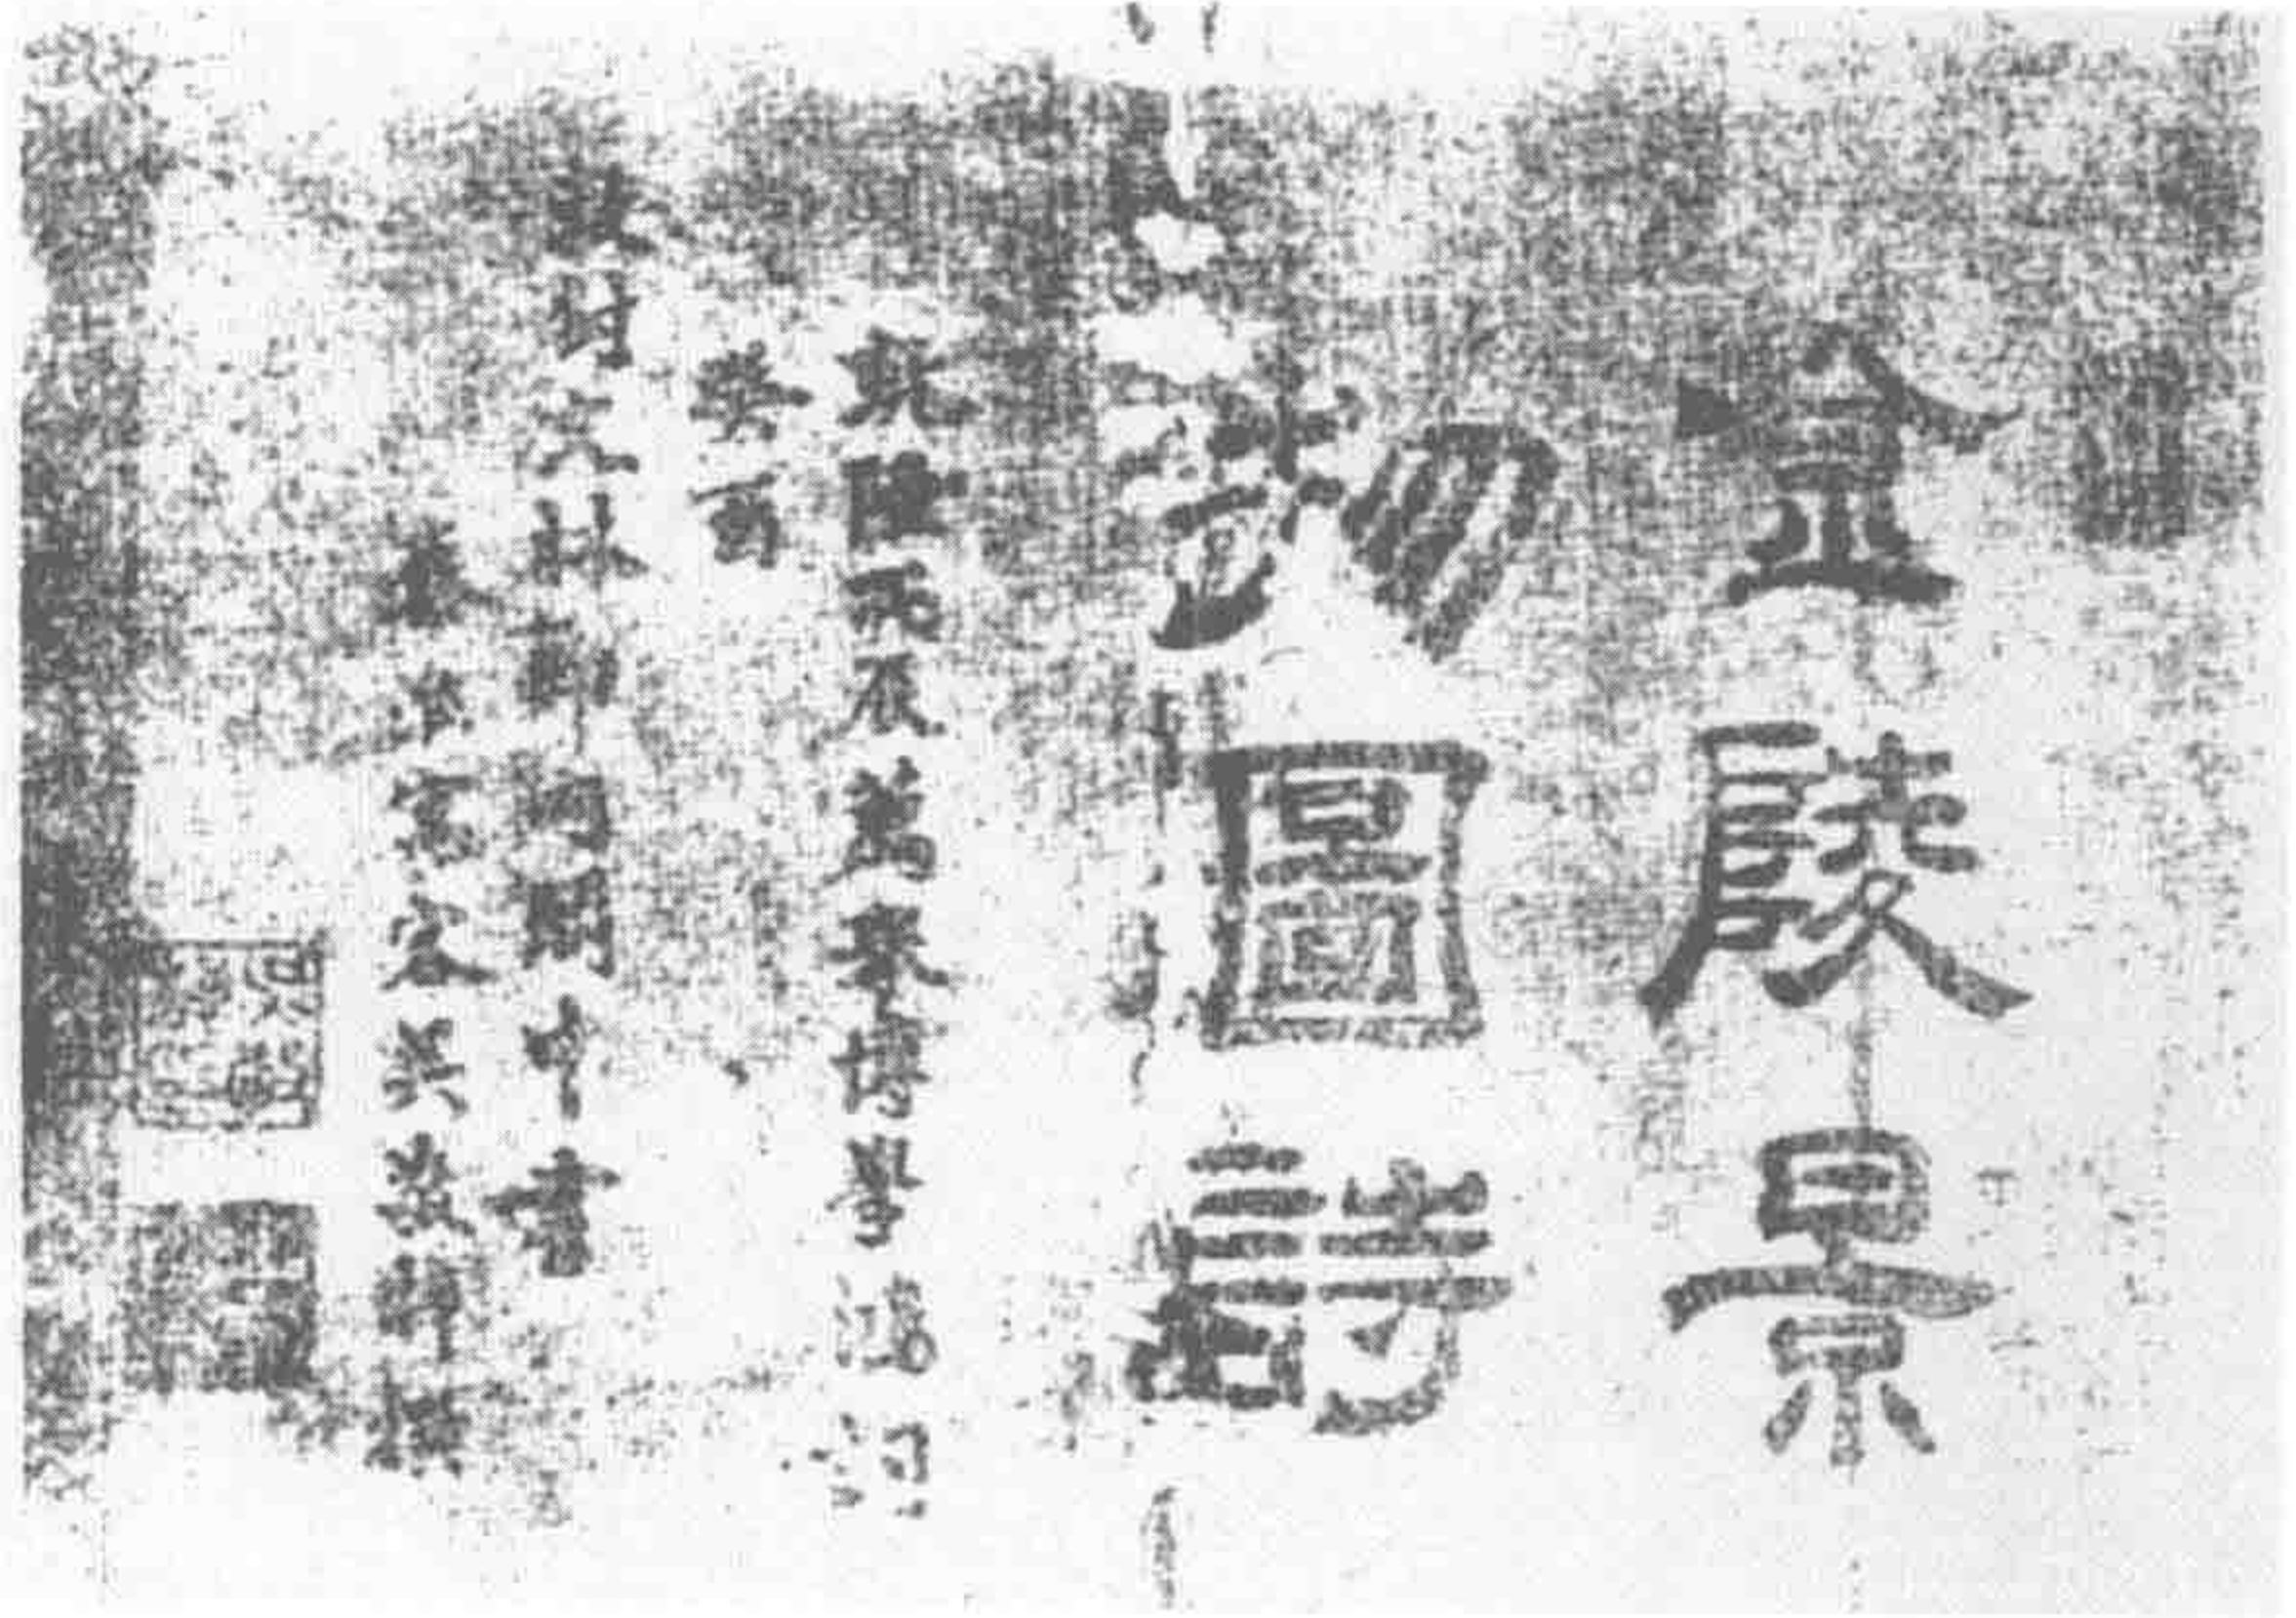 金陵景
物圖詩
乾隆丙辰薦舉博學鴻詞
癸酉
封文林郎內閣中書
秦淮寓客吳敬梓撰